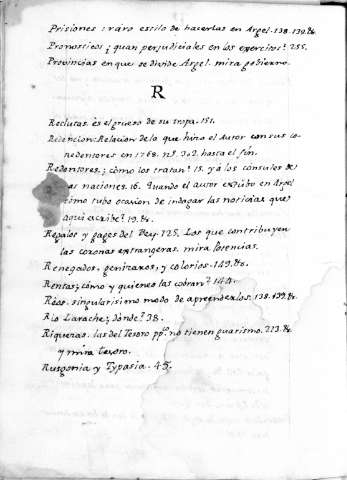 Prisiones: raro estilo de hacerlas en Argel. 138. 139. &.
Pronosticos; quan perjudiciales en los exercitos? 255.
Provincias en que se divide Argel. mira gobierno.
R
Reclutas. es el grueso de su tropa. 151.
Redencion: Relacion de la que hizo el Autor con sus co-
redentores en 1768. nº. 302. hasta el fin.
Redentores; como los tratan? 15. y a los consules de
las naciones. 16. Quando el autor estubo en Argel
como tubo ocasion de indagar las noticias que
aqui escribe? 19. &.
Regalos y gages del Dey. 125. Los que contribuyen
las coronas extrangeras. mira Potencias.
Renegados. genizaros, y colorios. 149. &.
Rentas; como y quienes las cobran? 144.
Réos. singularisimo modo de aprenderlos. 138. 139. &.
Rio Larache; donde? 38.
Riquezas. las del Tesoro ppco. no tienen guarismo. 213. &.
y mira tesoro.
Rusgonia y Typasia. 45.